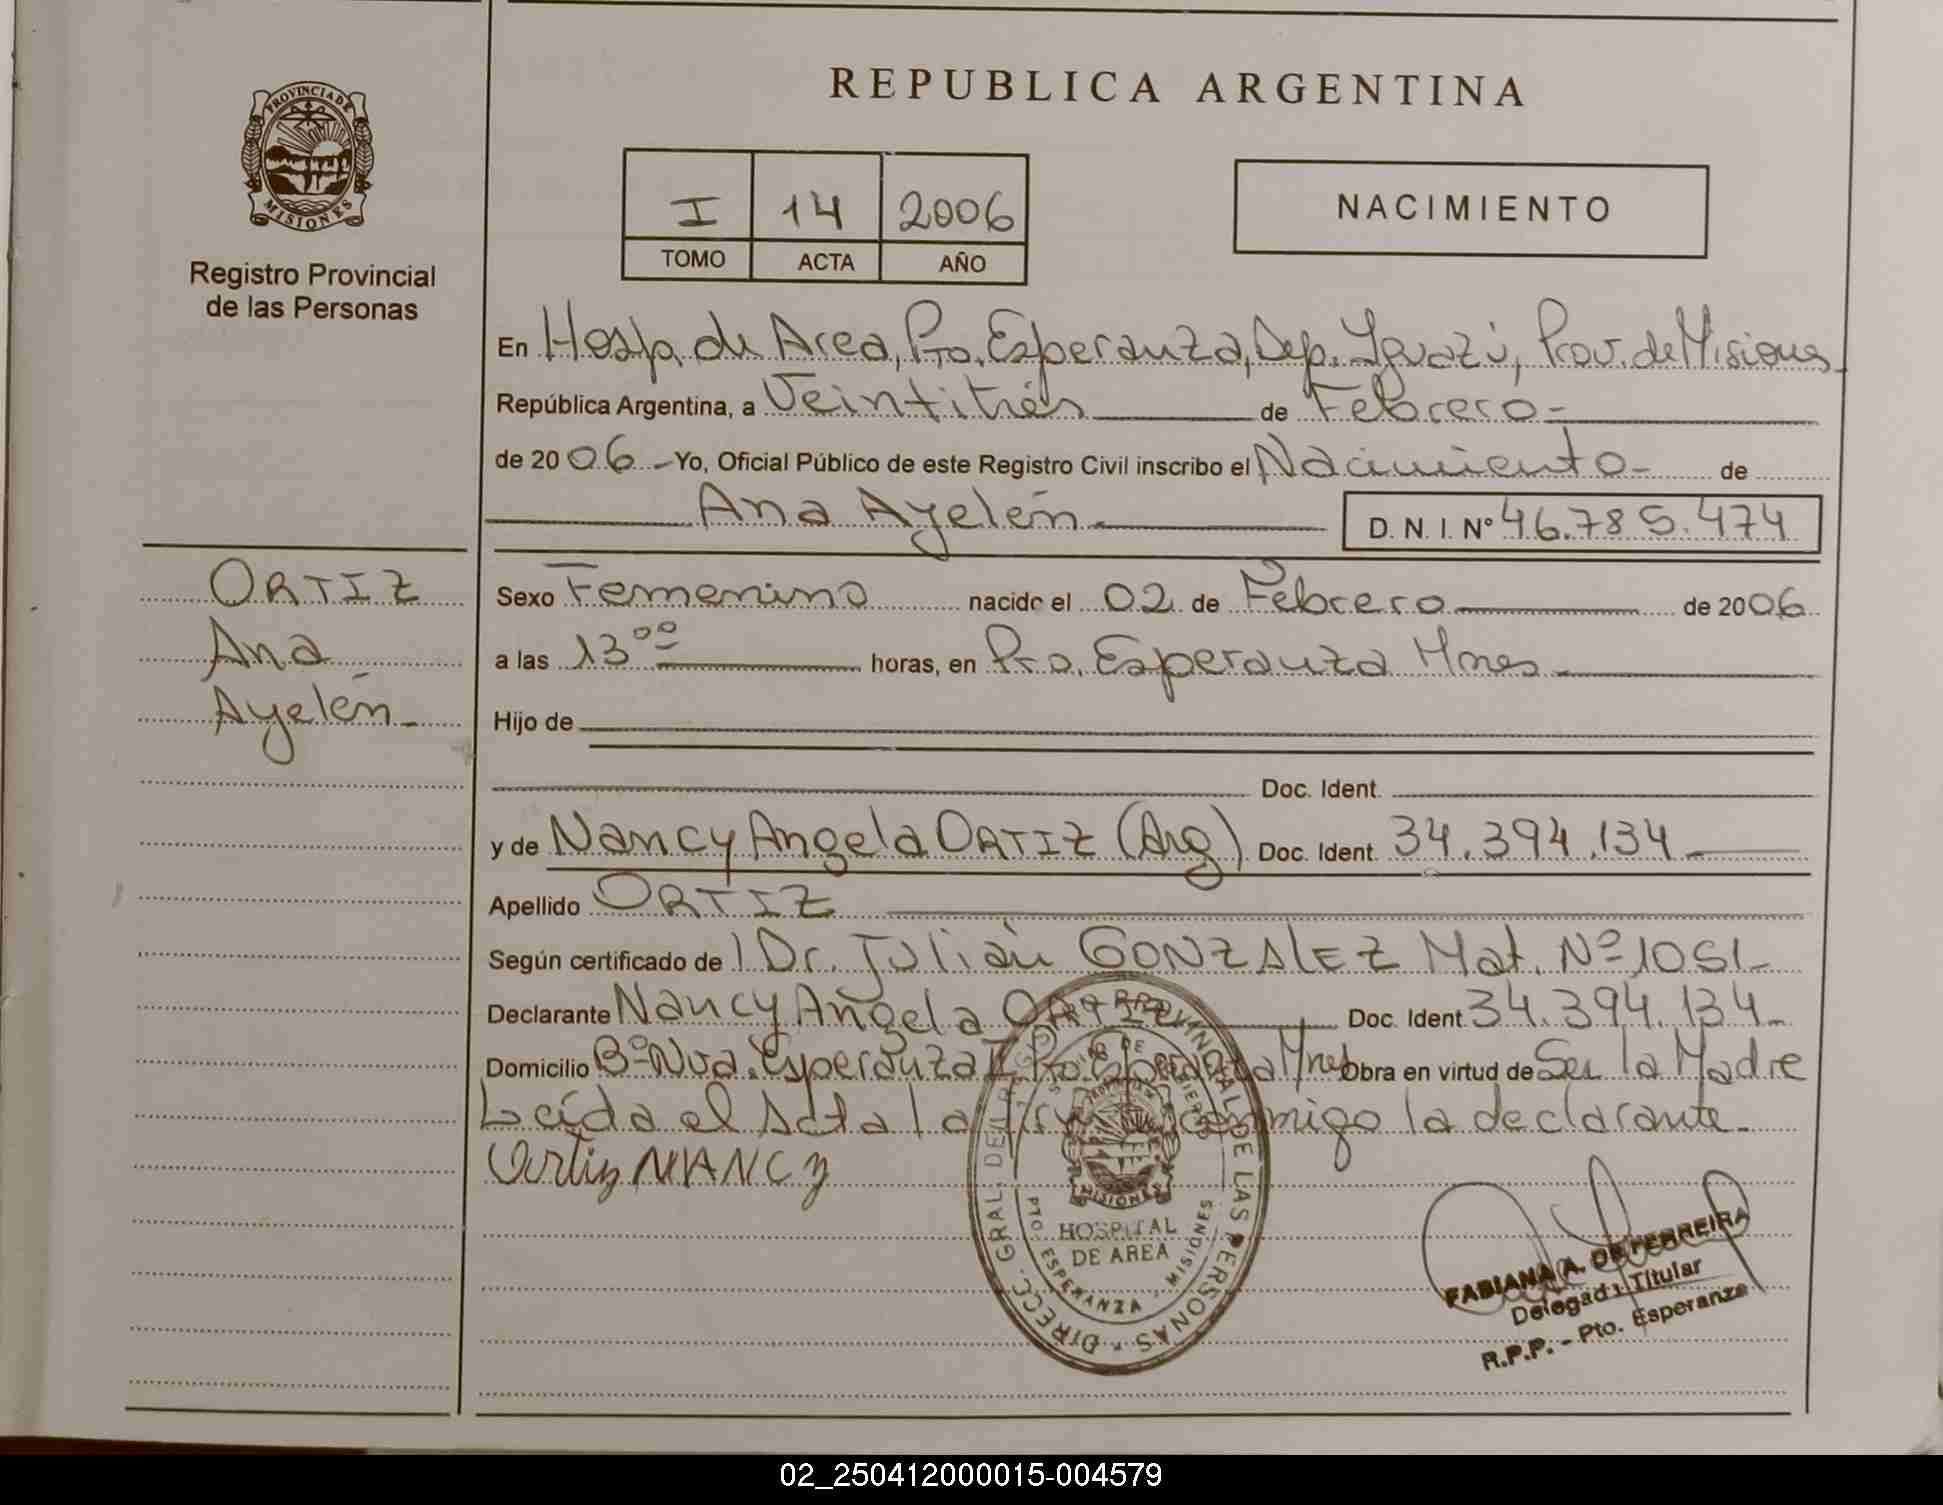 REPUBLICA ARGENTINA
PROVINCIA DE
MISIONES
Registro Provincial
de las Personas
I 14 2006
TOMO ACTA AÑO
NACIMIENTO
En Hosp. de Area, Pto. Esperanza, Dep. Iguazú, Prov. de Misiones
República Argentina, a Veintitrés de Febrero
de 2006 Yo, Oficial Público de este Registro Civil inscribo el Nacimiento de
Ana Ayelén D. N. I. Nº 46.785.474
ORTIZ
Ana
Ayelén
Sexo Femenino nacido el 02 de Febrero de 2006
a las 13°° horas, en Pto. Esperanza Mnes
Hijo de
Doc. Ident.
y de Nancy Angela ORTIZ (Arg) Doc. Ident. 34.394.134
Apellido ORTIZ
Según certificado de Dr. Julián GONZALEZ Mat. Nº 1051
Declarante Nancy Angela ORTIZ Doc. Ident. 34.394.134
Domicilio Bº Nva. Esperanza Pto. Esperanza Mnes Obra en virtud de Ser la Madre
Leída el Acta la firma conmigo la declarante
Ortiz NANCY
DIRECC. GRAL. DEL REGISTRO PROVINCIAL DE LAS PERSONAS
MISIONES
HOSPITAL
DE AREA
PTO ESPERANZA, MISIONES
FABIANA A. DE FERREIRA
Delegada Titular
R.P.P. - Pto. Esperanza
02_250412000015-004579